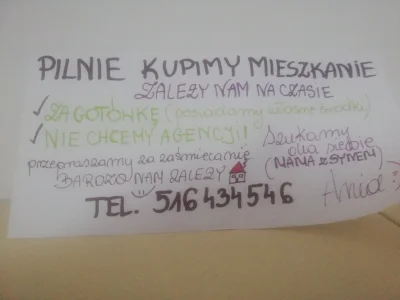 PILNIE KUPIMY MIESZKANIE
ZALEŻY NAM NA CZASIE
✓ ZA GOTÓWKĘ (posiadamy własne środki)
✓ NIE CHCEMY AGENCJI!
przepraszamy za zaśmiecanie
BARDZO NAM ZALEŻY
Szukamy
dla siebie
(MAMA Z SYNEM)
Ania :)
TEL. 516 434 546